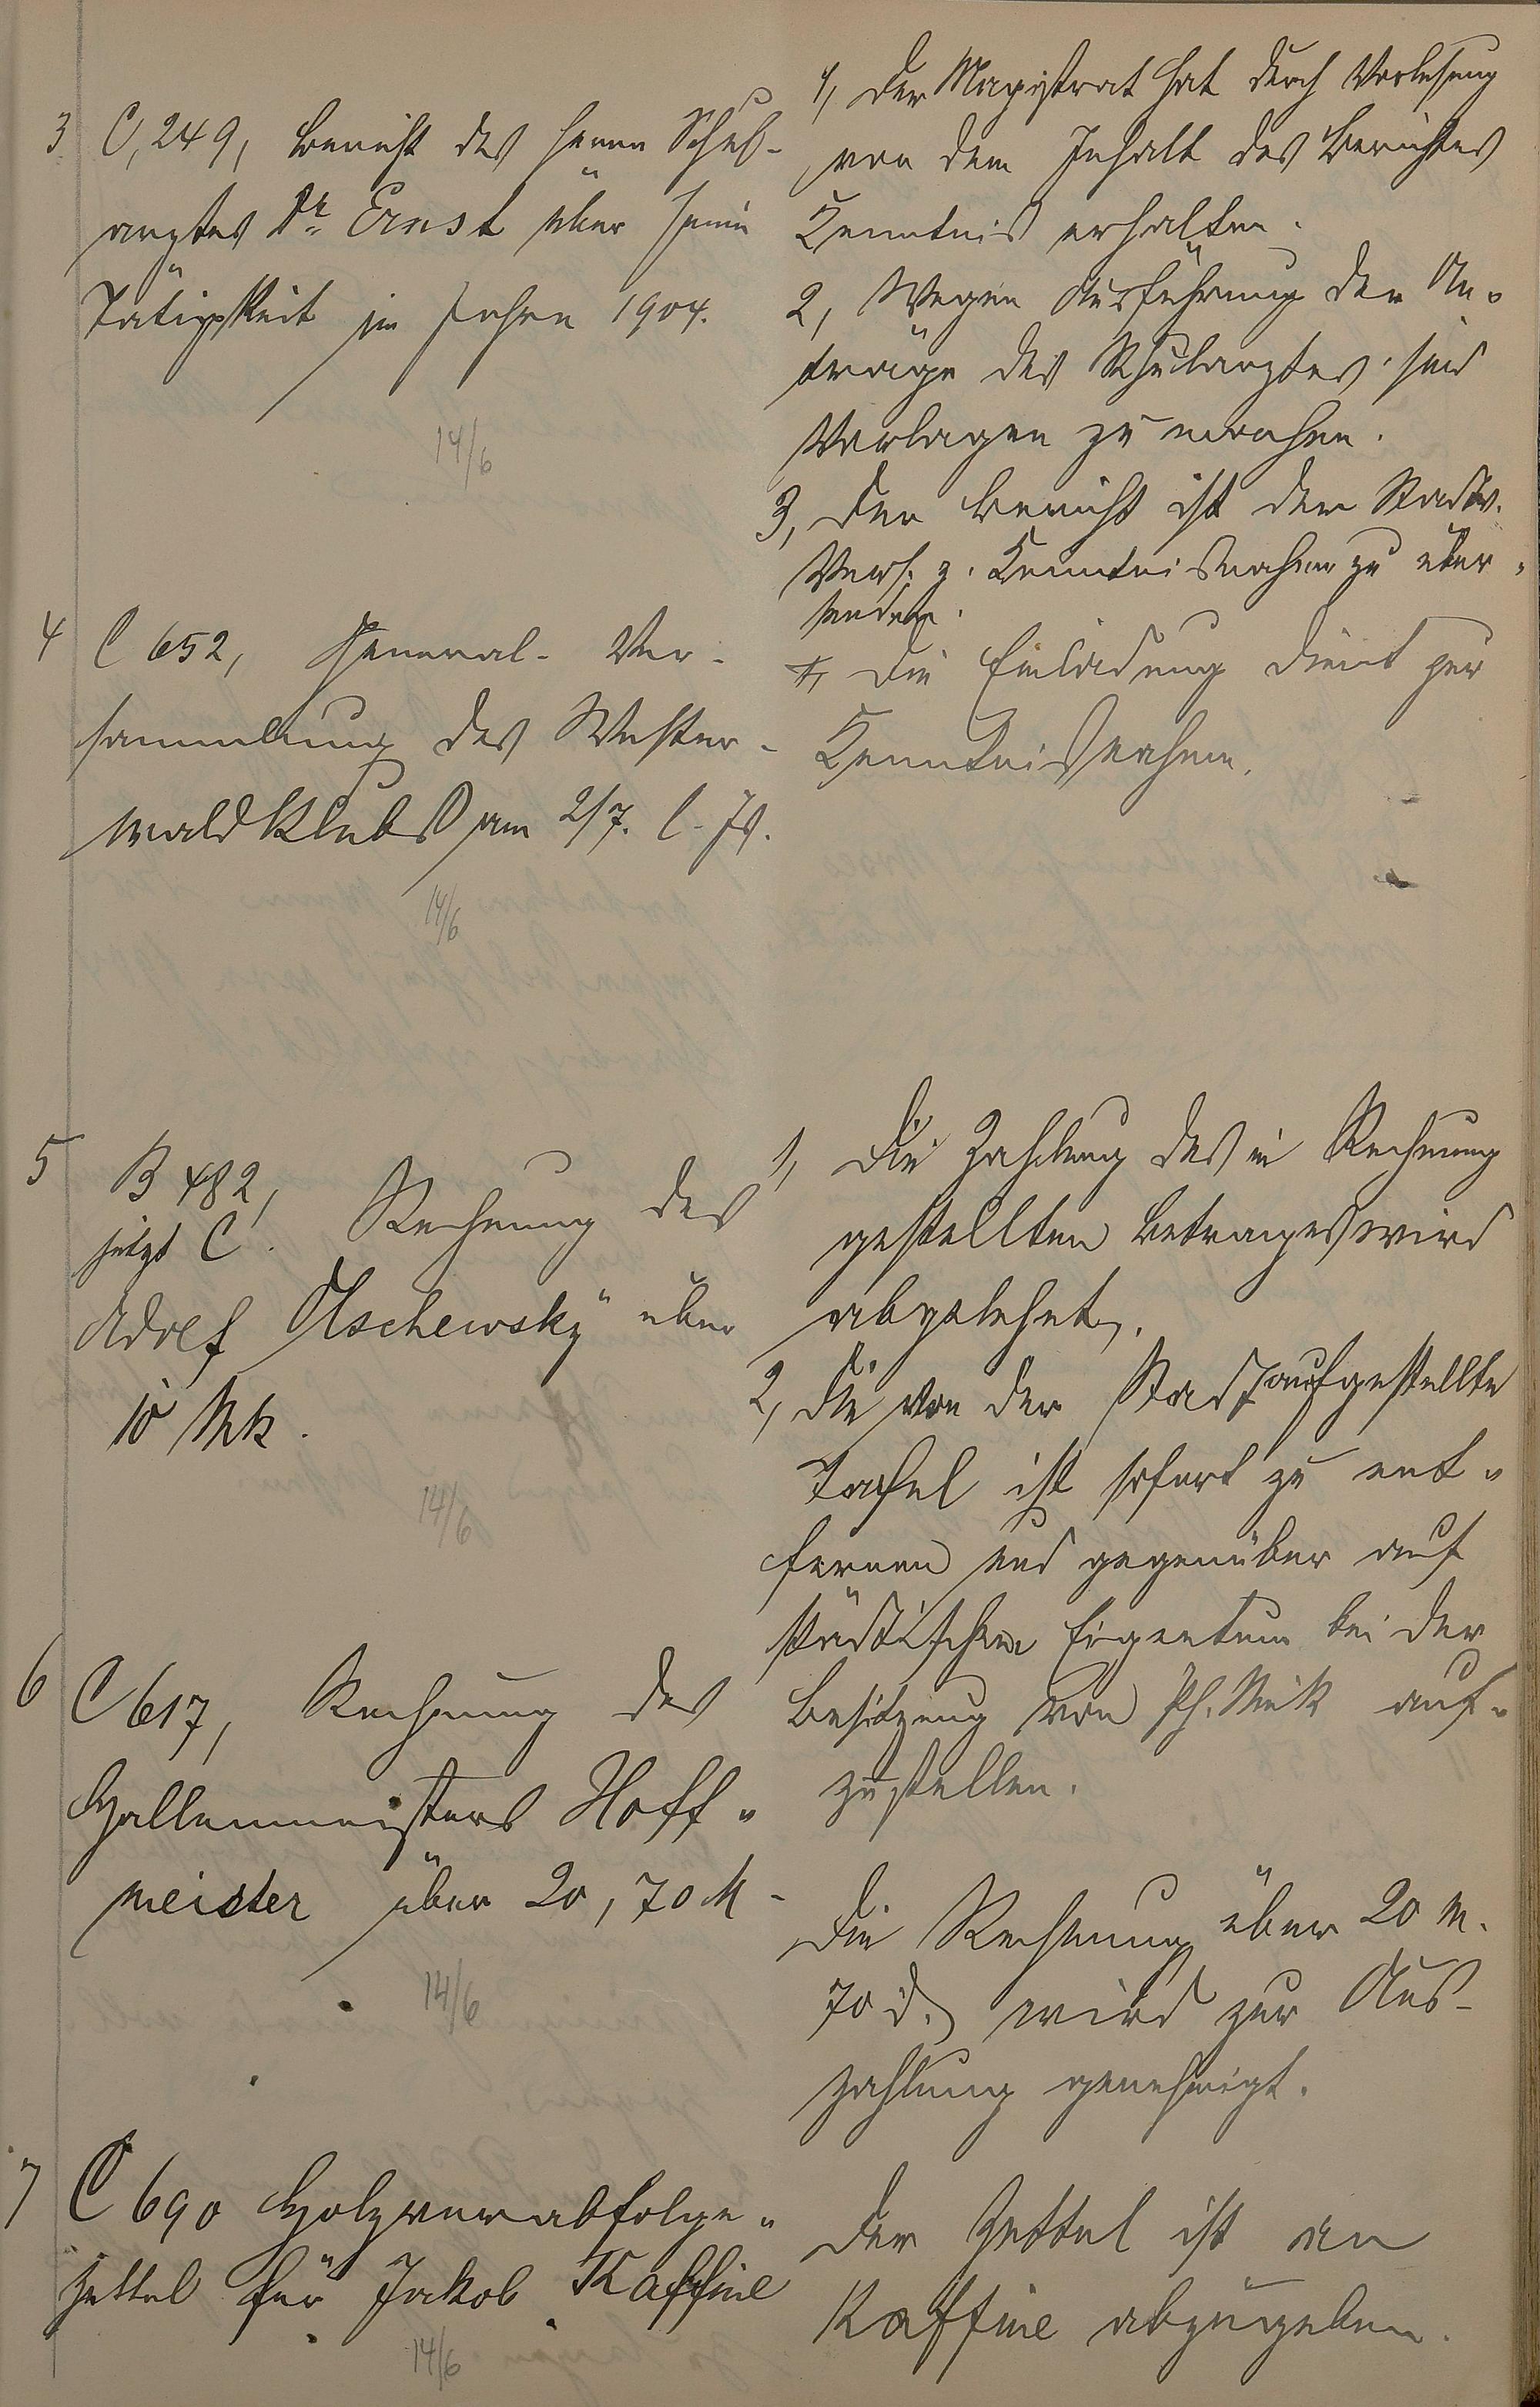 3 C, 249, Bericht des Herrn Schul-
arztes Dr. Ernst über seine
Tätigkeit im Jahre 1904.
14/6
1, Der Magistrat hat durch Vorlesung
von dem Inhalt des Berichtes
Kenntnis erhalten.
2, Wegen Ausführung der An-
träge des Schularztes sind
Vorlagen zu machen.
3, Der Bericht ist der Stadtv.
Vers. z. Kenntnisnahme zu über-
senden.
4 C 652, General-Ver-
sammlung des Wester-
wald Klubs am 2/7. l. Js.
14/6
1, Die Einladung dient zur
Kenntnisnahme.
5 B 482,
jetzt C. Rechnung des
Adolf Olschewsky über
10 Mk.
14/6
1, Die Zahlung des in Rechnung
gestellten Betrages wird
abgelehnt.
2, Die von der Stadt aufgestellte
Tafel ist sofort zu ent-
fernen und gegenüber auf
städtischem Eigentum bei der
Besitzung von Ph. auf-
zustellen.
6 C 617, Rechnung des
Hallenmeisters Hoff-
meister über 20,70 M
14/6
Die Rechnung über 20 M.
70 d. wird zur Aus-
zahlung genehmigt.
7 C 690 Holzverabfolge-
zettel für Jakob Kaffine
14/6
Der Zettel ist an
Kaffine abzugeben.